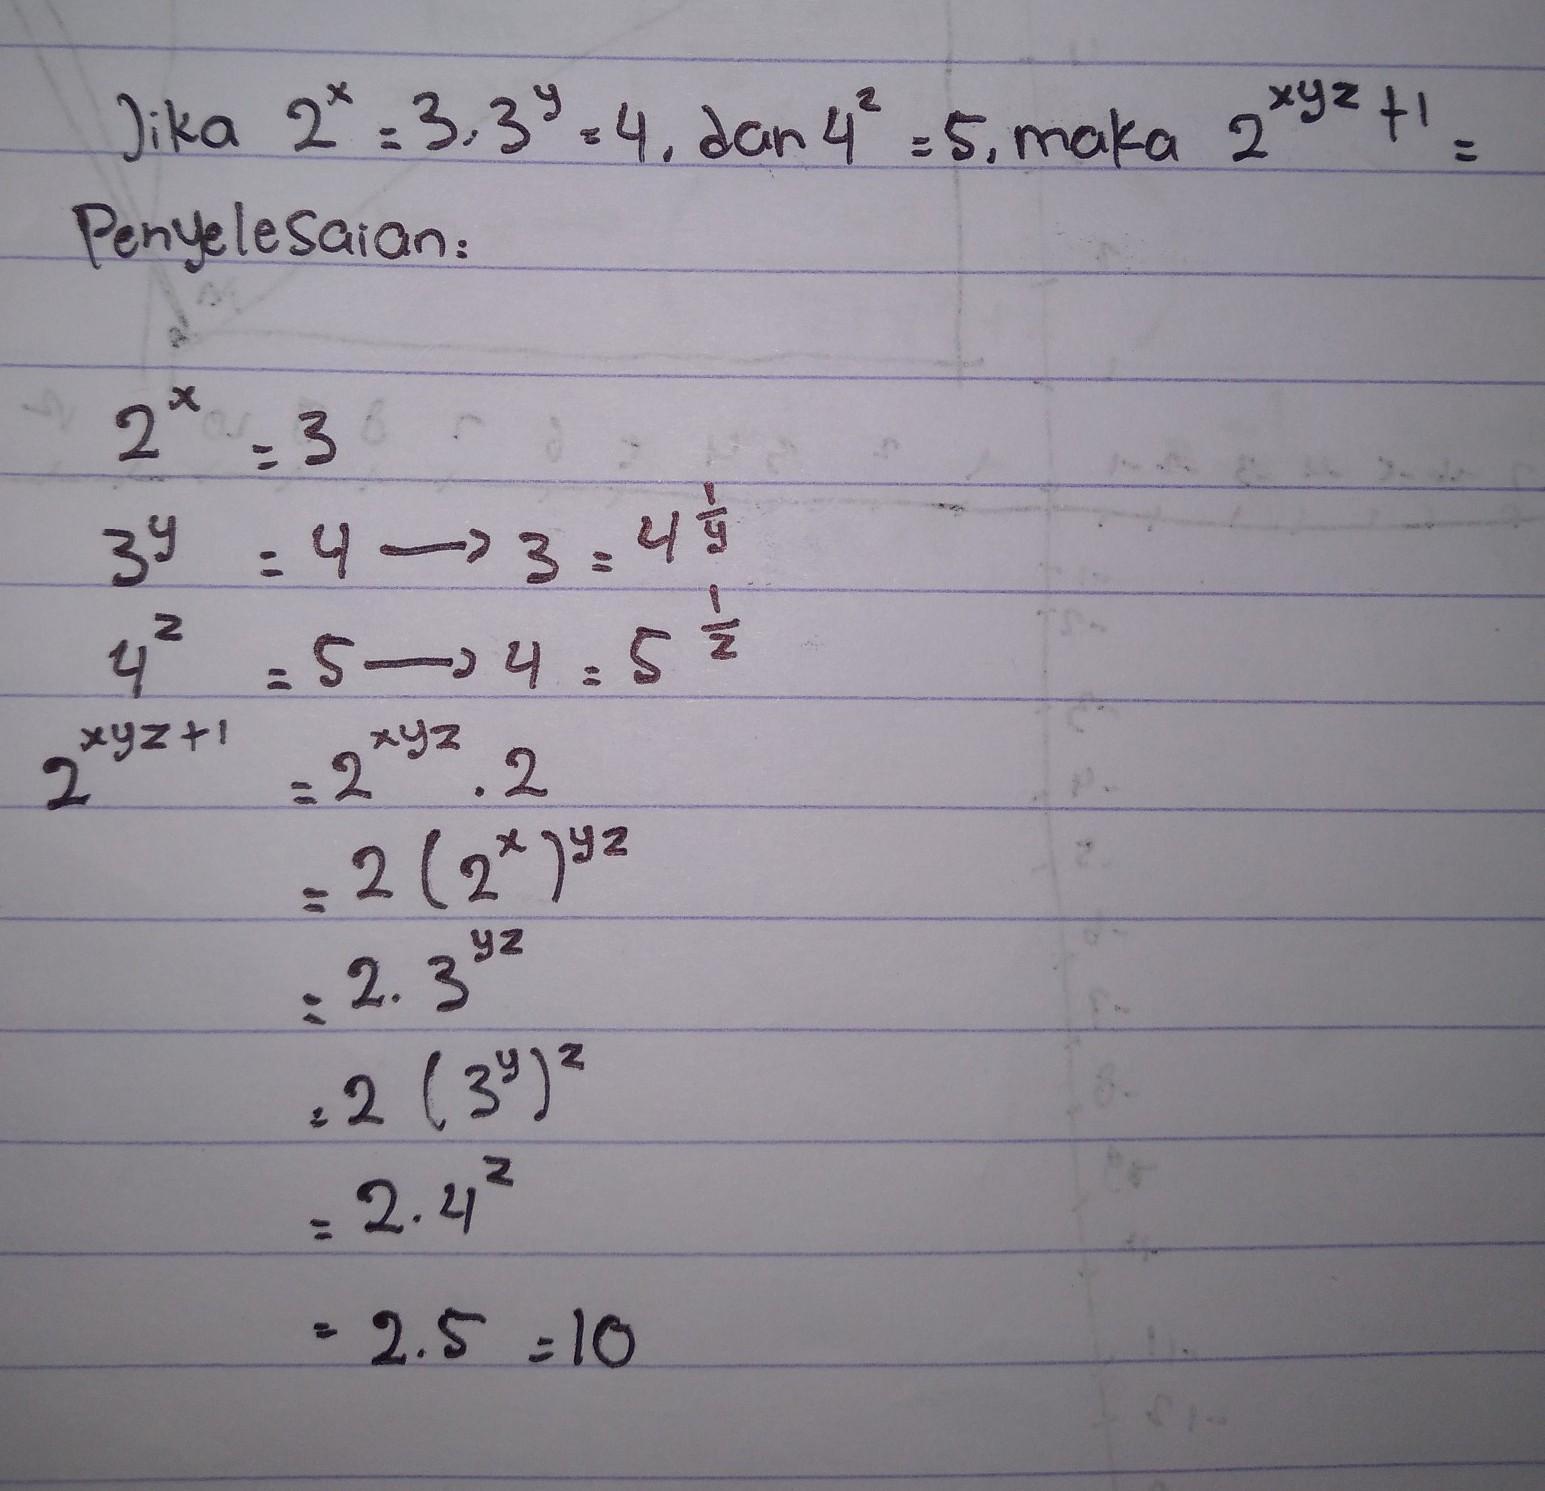 Jika 2^x = 3, 3^y = 4, dan 4^z = 5, maka 2^xyz +1 =
Penyelesaian:
2^x = 3
3^y = 4 → 3 = 4^1/y
4^z = 5 → 4 = 5^1/z
2^xyz+1 = 2^xyz . 2
= 2 (2^x)^yz
= 2. 3^yz
= 2 (3^y)^z
= 2.4^z
= 2.5 = 10